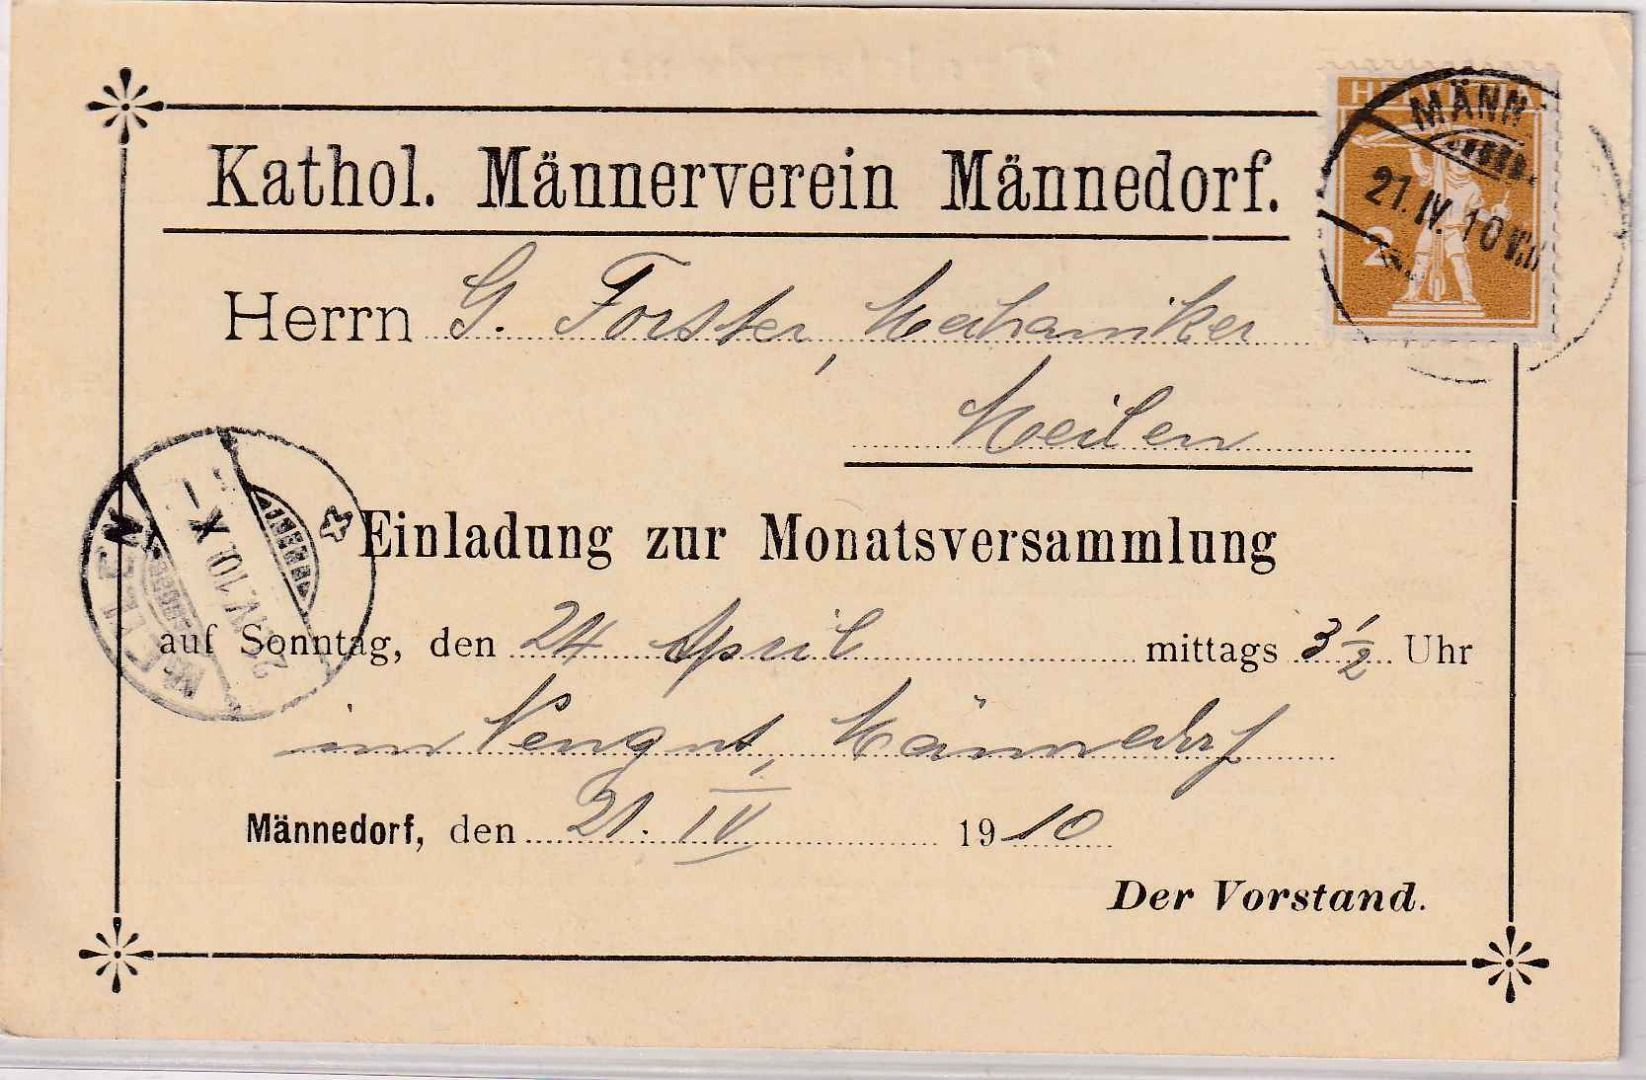 HELVETIA
MÄNN
21.IV.10
2
Kathol. Männerverein Männedorf.
Herrn G. Forster, Mechaniker
Meilen
MEILEN
IV.10. X –
Einladung zur Monatsversammlung
auf Sonntag, den 24 April mittags 3 1/2 Uhr
im Neugut, Männedorf
Männedorf, den 21. IV 1910
Der Vorstand.